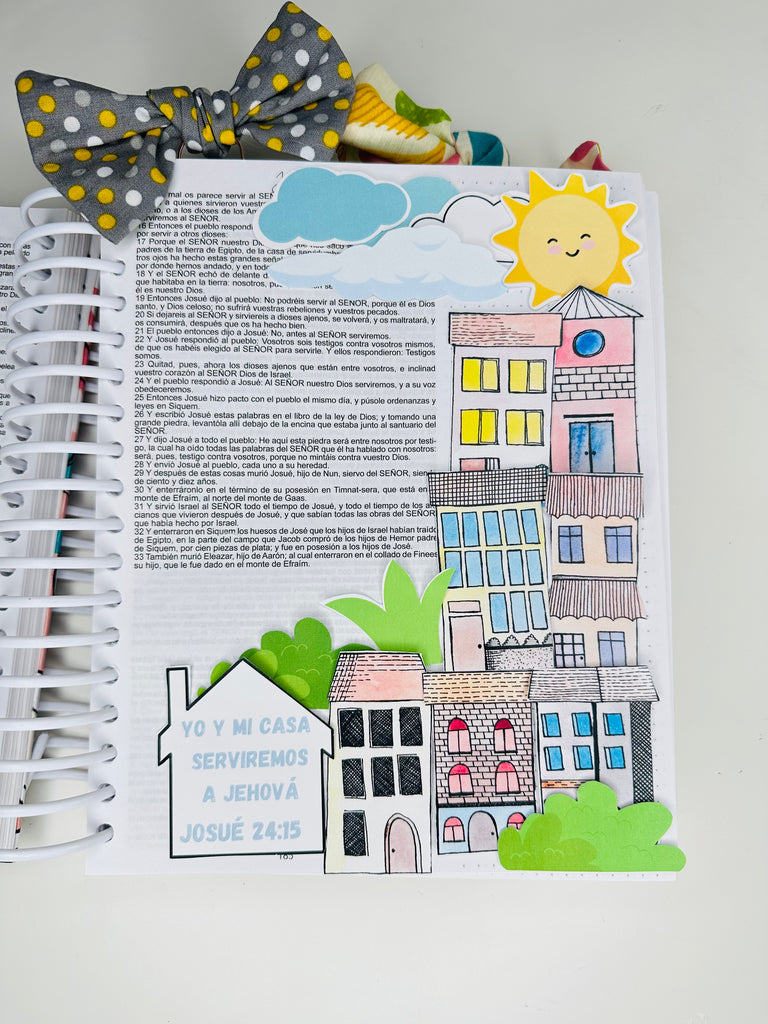 mal os parece servir al
a quienes sirvieron vuestr
o a los dioses de los Am
serviremos al SEÑOR.
16 Entonces el pueblo respondi
por servir a otros dioses:
17 Porque el SEÑOR nuestro Di
que nos sacó
padres de la tierra de Egipto, de la casa de
tros ojos ha hecho estas grandes señal
por donde hemos andado, y en todo
18 Y el SEÑOR echó de delante d
que habitaba en la tierra: nosotros, pu
él es nuestro Dios.
19 Entonces Josué dijo al pueblo: No podréis servir al SEÑOR, porque él es Dios
santo, y Dios celoso; no sufrirá vuestras rebeliones y vuestros pecados.
20 Si dejareis al SEÑOR y sirviereis a dioses ajenos, se volverá, y os maltratará, y
os consumirá, después que os ha hecho bien.
21 El pueblo entonces dijo a Josué: No, antes al SEÑOR serviremos.
22 Y Josué respondió al pueblo: Vosotros sois testigos contra vosotros mismos,
de que os habéis elegido al SEÑOR para servirle. Y ellos respondieron: Testigos
somos.
23 Quitad, pues, ahora los dioses ajenos que están entre vosotros, e inclinad
vuestro corazón al SEÑOR Dios de Israel.
24 Y el pueblo respondió a Josué: Al SEÑOR nuestro Dios serviremos, y a su voz
obedeceremos.
25 Entonces Josué hizo pacto con el pueblo el mismo día, y púsole ordenanzas y
leyes en Siquem.
26 Y escribió Josué estas palabras en el libro de la ley de Dios; y tomando una
grande piedra, levantóla allí debajo de la encina que estaba junto al santuario del
SEÑOR.
27 Y dijo Josué a todo el pueblo: He aquí esta piedra será entre nosotros por testi-
go, la cual ha oído todas las palabras del SEÑOR que él ha hablado con nosotros:
será, pues, testigo contra vosotros, porque no mintáis contra vuestro Dios.
28 Y envió Josué al pueblo, cada uno a su heredad.
29 Y después de estas cosas murió Josué, hijo de Nun, siervo del SEÑOR, siend
de ciento y diez años.
30 Y enterráronlo en el término de su posesión en Timnat-sera, que está en
monte de Efraím, al norte del monte de Gaas.
31 Y sirvió Israel al SEÑOR todo el tiempo de Josué, y todo el tiempo de los an
cianos que vivieron después de Josué, y que sabían todas las obras del SEÑOR
que había hecho por Israel.
32 Y enterraron en Siquem los huesos de José que los hijos de Israel habían traído
de Egipto, en la parte del campo que Jacob compró de los hijos de Hemor padre
de Siquem, por cien piezas de plata; y fue en posesión a los hijos de José.
33 También murió Eleazar, hijo de Aarón; al cual enterraron en el collado de Finees
su hijo, que le fue dado en el monte de Efraím.
YO Y MI CASA
SERVIREMOS
A JEHOVÁ
JOSUÉ 24:15